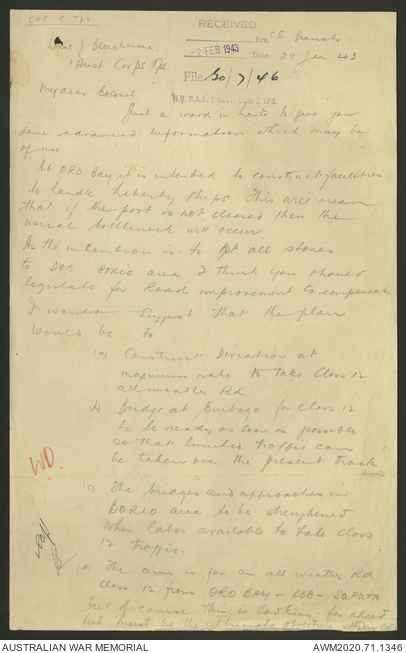 RECEIVED
CE Branch
-2 FEB 1943 Date 29 Jan 43
1 Aust Corps Tps File 30/7/46
My dear Colonel
Just a word in haste to give you
some advanced information which may be
of use
At ORO Bay it is intended to construct facilities
to handle Liberty ships. This will mean
that if the port is not cleared then the
usual bottleneck will occur.
As the intention is to put all stores
to DOB area I think you should
legislate for Road improvement to compensate
I would suggest that the plan
would be to
(a) Construct Deviation at
maximum rate to take Class 12
all weather Rd
(b) Bridge at for class 12
to be ready as soon as possible
so that limited traffic can
be taken over the present track
(c) The bridges and approaches in
area to be strengthened
when labor available to take Class
12 traffic.
(d) The aim is for an all weather Rd
Class 12 from ORO BAY - DOB - SOPUTA
but of course this is looking far ahead
but must be the ultimate objective
AUSTRALIAN WAR MEMORIAL AWM2020.71.1346